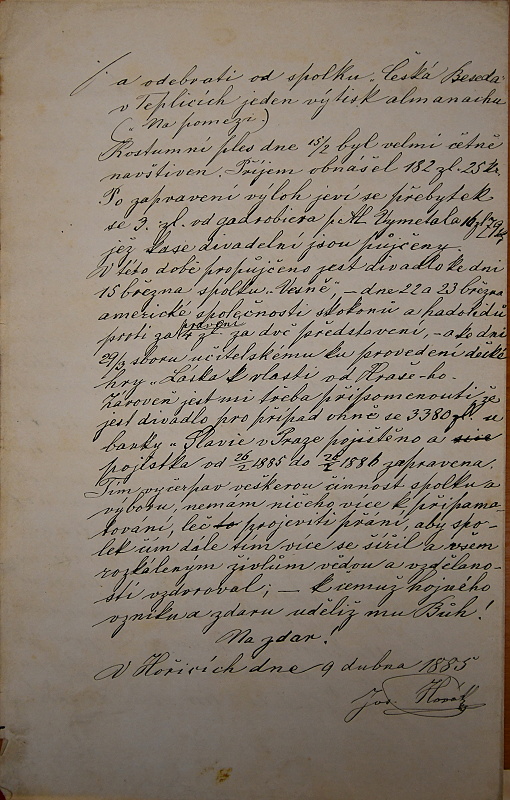 a odebrati od spolku „Česká Beseda"
v Teplicích jeden výtisk almanachu
(„Na pomezí.)
Kostumní ples dne 15/2 byl velmi četně
navštíven. Příjem obnášel 182 zl. 25 kr.
Po zapravení výloh jeví se přebytek
se 3. zl. od gadrobiera p. Al. Vymetala
jež kase divadelní jsou půjčeny.
V této době propůjčeno jest divadlo ke dni
15 března spolku „Vesně", – dne 22 a 23 března
americké společnosti skokonů a hadolidů
proti zapravení 4 zl za dvě představení, – a ko dni
29/3 sboru učitelskému ku provedení dětské
hry „Láska k vlasti od Hraše-ho.
Zároveň jest mi třeba připomenouti, že
jest divadlo pro případ ohně se 3380 zl. u
banky „Slavie v Praze pojištěno a sice
pojistka od 26/2 1885 do 26/2 1886 zapravena.
Tím vyčerpav veškerou činnost spolku a
výboru, nemám ničeho více k připama-
tování, leč to projeviti přání, aby spo-
lek čím dále tím více se šířil a všem
rozkáleným živlům vědou a vzdělano-
stí vzdoroval; – k čemuž hojného
vzniku a zdaru uděliž mu Bůh!
Na zdar!
V Hořicích dne 9 dubna 1885
Jos. Horák